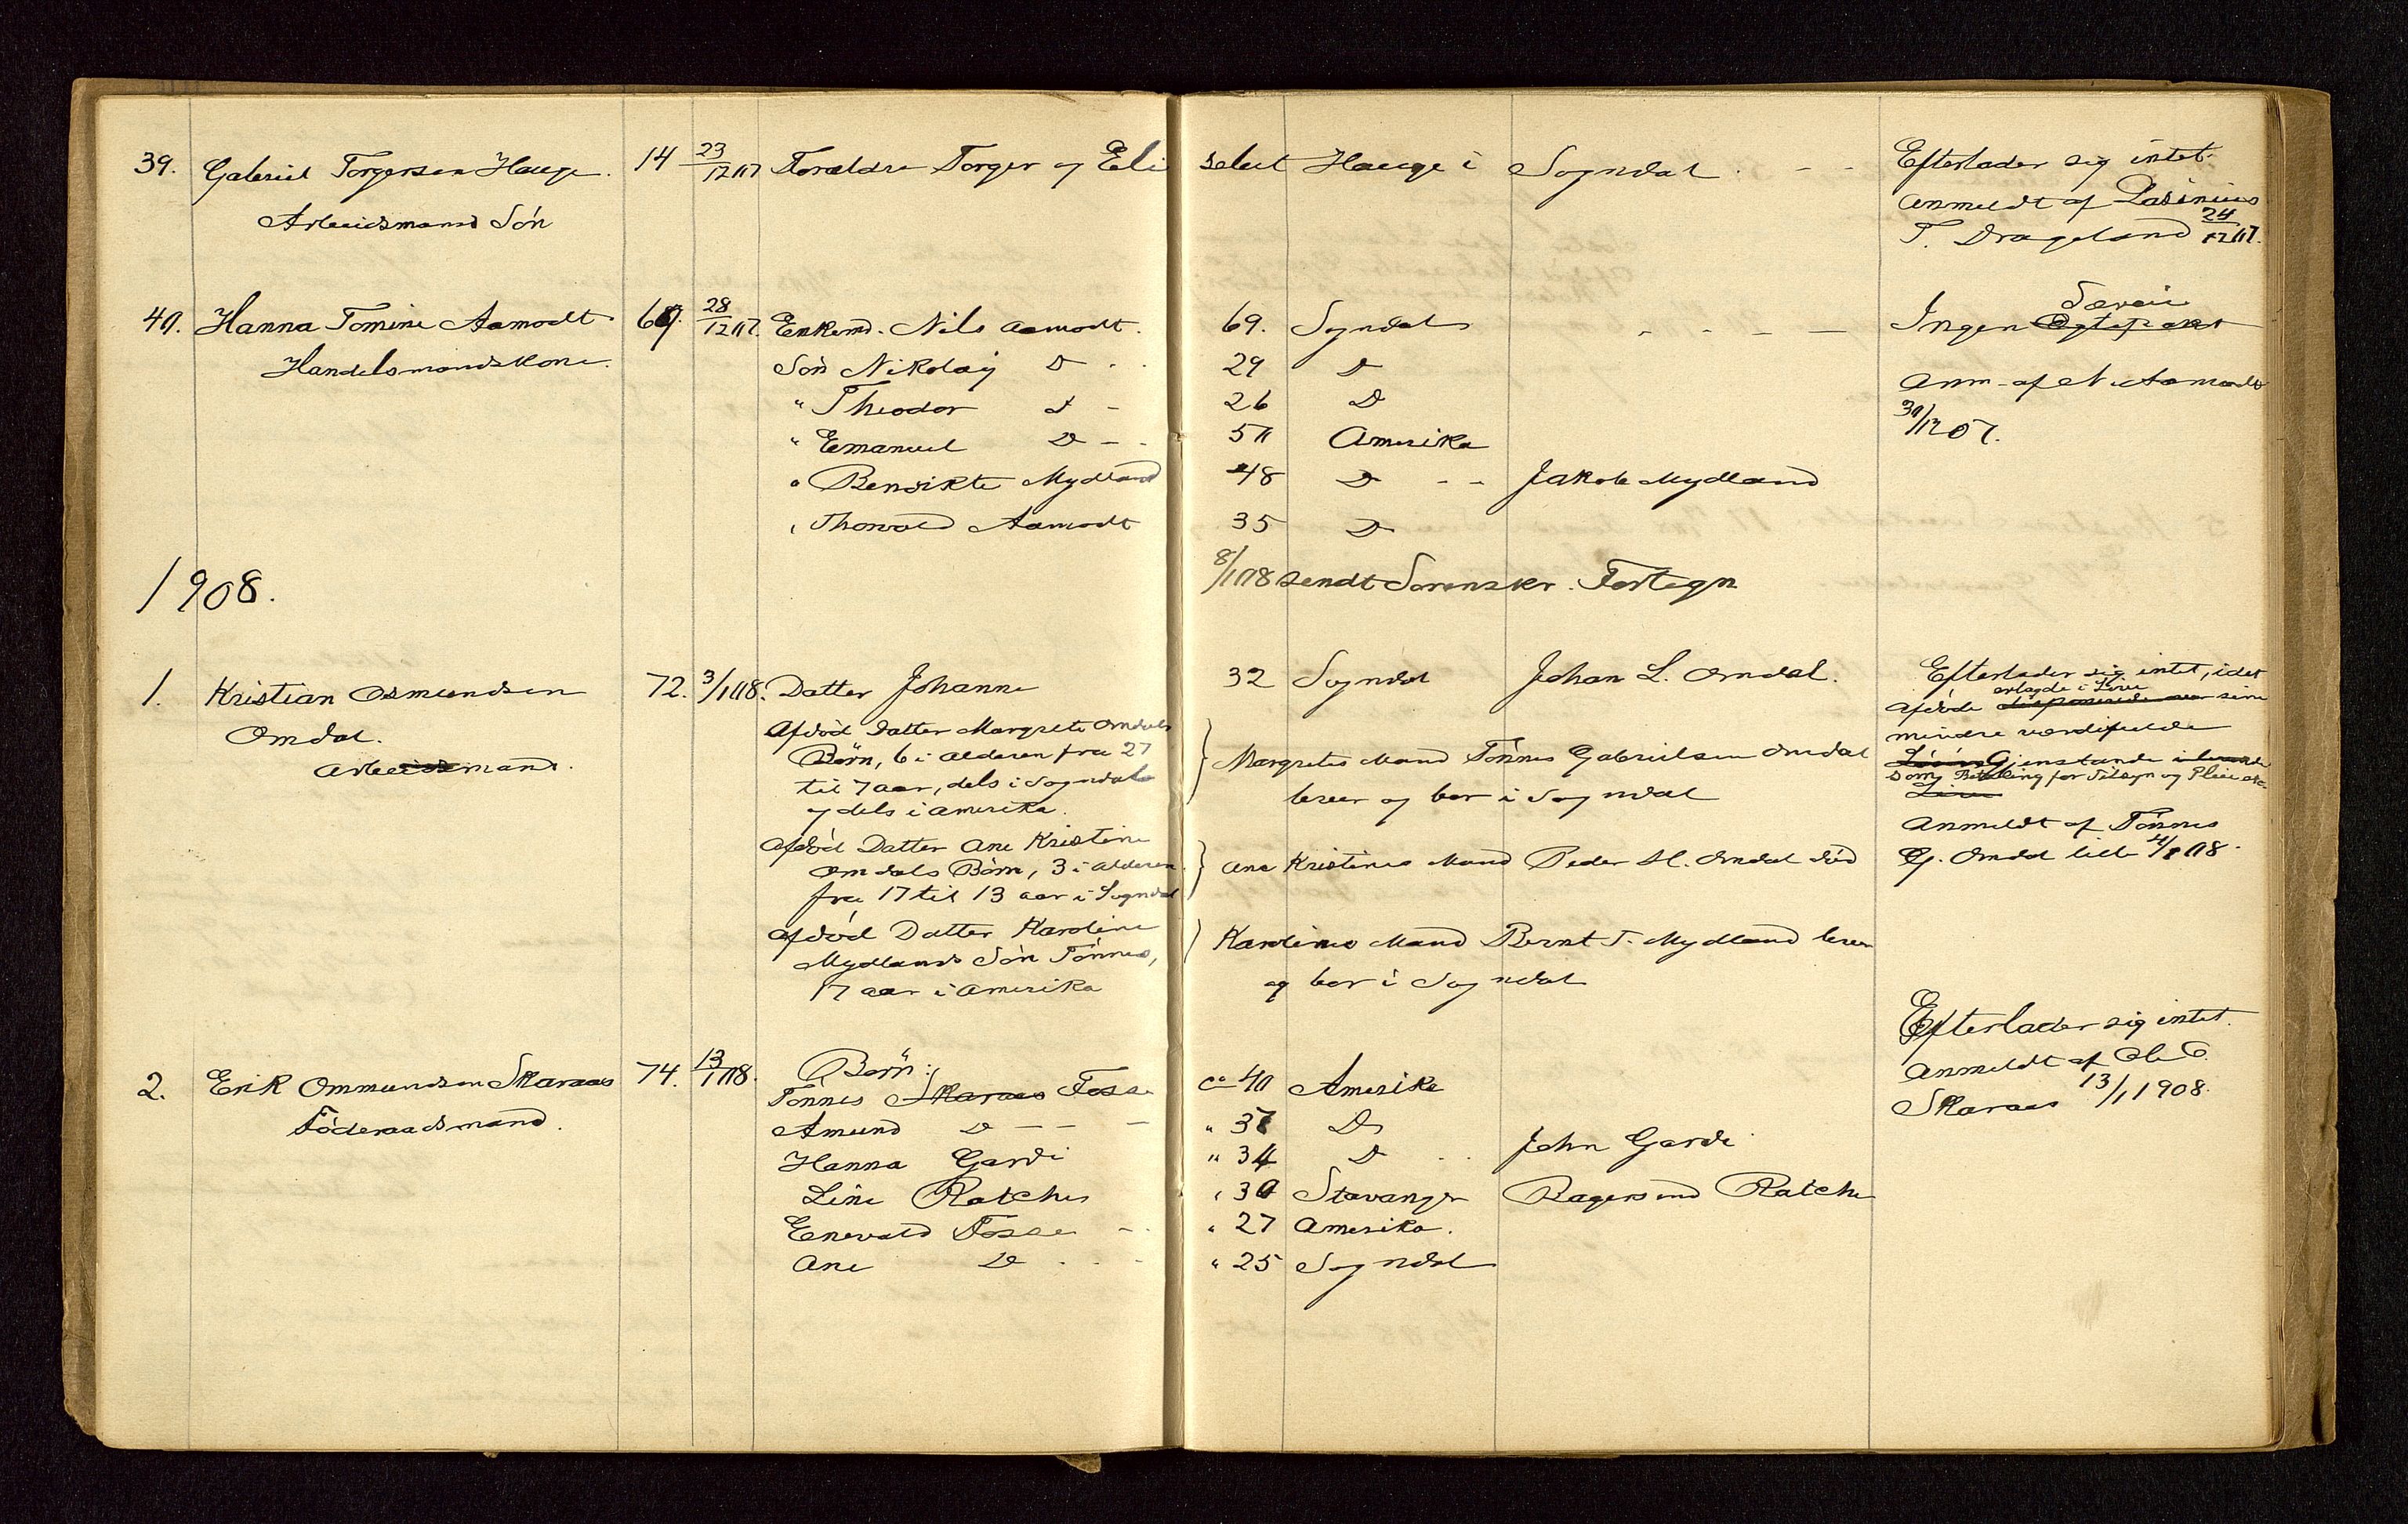 39. Gabriel Torgersen Hauge. 14 23/12 07 Foreldre Torger og Eli
Arbeidsmand Søn
40. Hanna Tomine Aamodt 69. 28/12 07. Enkemd. Nils Aamodt.
Handelsmandskone. Søn Nikolay D
" Theodor D -
" Emanuel D - -
" Bendikte Mydland
" Thorvald Aamodt
1908.
1. Kristian Osmundsen 72. 3/1 08. Datter Johanne
Omdal. Afdød Datter Margrete Omdals
Arbeidsmand. Børn, 6 i Alderen fra 27
til 7 aar, dels i Sogndal
og dels i Amerika.
Afdød Datter Ane Kristine
Omdals Børn, 3 i Alderen
fra 17 til 13 aar i Sogndal
Afdød Datter Karoline
Mydlands Søn Tønnes,
17 aar i Amerika
2. Erik Ommundsen Skaraas 74. 13/1 08. Børn:
Føderaadsmand. Tønnes Skaraas Fosse
Amund D - - -
Hanna Gardi
Line Ratche
Enevald Fosse -
Ane D
Hauge i Sogndal. - - Efterlader sig intet.
Anmeldt af
T. Drageland 24/12 07.
69. Sogndal - - - - Ingen Særeie
29 D Anm. af N. Aamodt
26 D 30/12 07.
50 Amerika
48 D - - Jakob Mydland
35 D
8/1 08 sendt Sorenskr. Fortegn
32 Sogndal Johan L. Omdal. Efterlader sig intet, idet
erlagde i Live
afdøde disponerede over sine
mindre værdifulde
Margretes Mand Tønnes Gabrielsen Omdal Løsøre Gjenstande
lever og bor i Sogndal som Betaling for Tilsyn og Pleie
Live
Anmeldt af Tønnes
Ane Kristines Mand Peder H. Omdal død G. Omdal lille 4/1 08.
Karolines Mand Bernt T. Mydland lever
og bor i Sogndal
Efterlader sig intet.
ca 40 Amerika Anmeldt af Ole E.
" 37 D Skaraas 13/1 1908.
" 34 D John Gardi
" 30 Stavanger Ratche
" 27 Amerika.
" 25 Sogndal